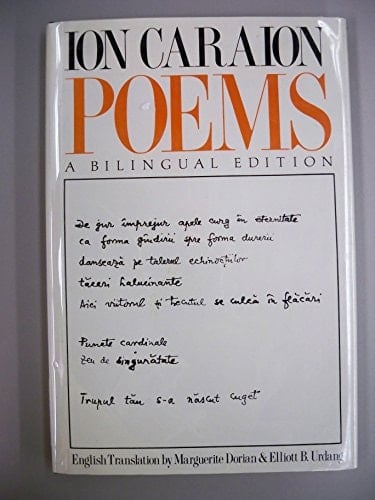 ION CARAION
POEMS
A BILINGUAL EDITION
De jur împrejur apele curg în eternitate
ca forma gîndirii spre forma durerii
dansează pe talerul echinocțiilor
tăceri halucinante
Aici viitorul și trecutul se culcă în flăcări
Puncte cardinale
zeu de singurătate
Trupul tău s-a născut cuget
English Translation by Marguerite Dorian & Elliott B. Urdang